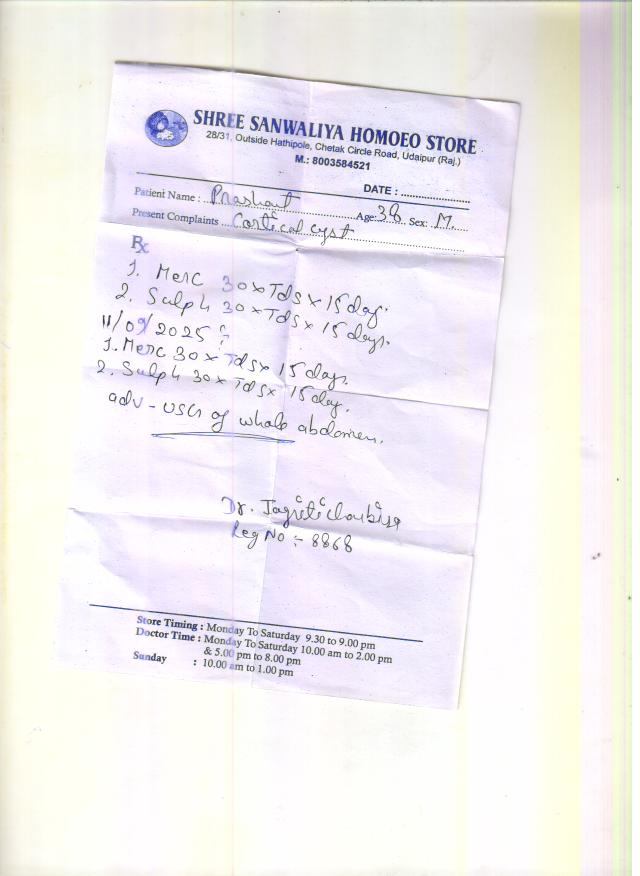 SHREE SANWALIYA HOMOEO STORE
28/31, Outside Hathipole, Chetak Circle Road, Udaipur (Raj.)
M.: 8003584521
DATE : ..................
Patient Name : Prashant Age: 38 Sex: M.
Present Complaints Cortical cyst
Rx
1. Merc 30 x Tds x 15 day.
2. Sulph 30 x Tds x 15 days.
11/09/2025 :
1. Merc 30 x Tds x 15 day.
2. Sulph 30 x Tds x 15 day.
adv - USG of whole abdomen.
Dr. Jagriti
Reg No :- 8868
Store Timing : Monday To Saturday 9.30 to 9.00 pm
Doctor Time : Monday To Saturday 10.00 am to 2.00 pm
& 5.00 pm to 8.00 pm
Sunday : 10.00 am to 1.00 pm